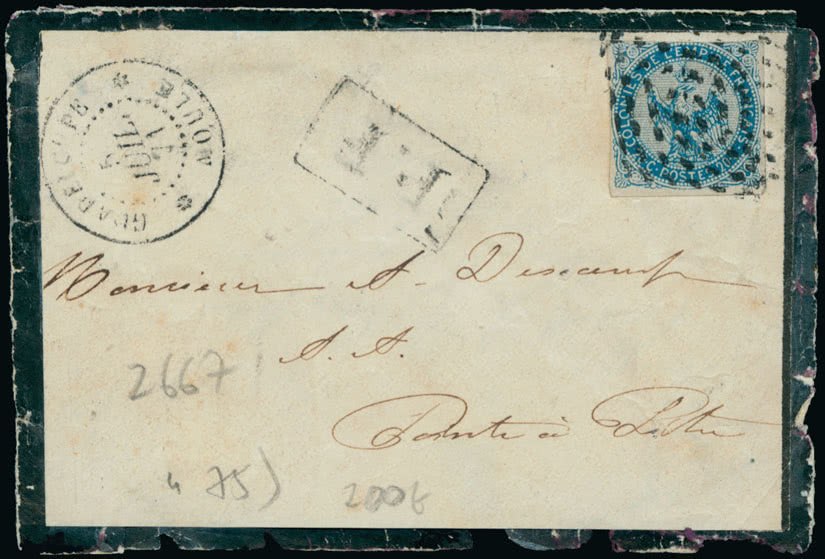 GUADELOUPE
MOULE
JUIL
P.P.
COLONIES DE L'EMPIRE FRANÇAIS
POSTES
Monsieur A. Descamps
A. A.
Pointe à Pitre
2667
75)
2006